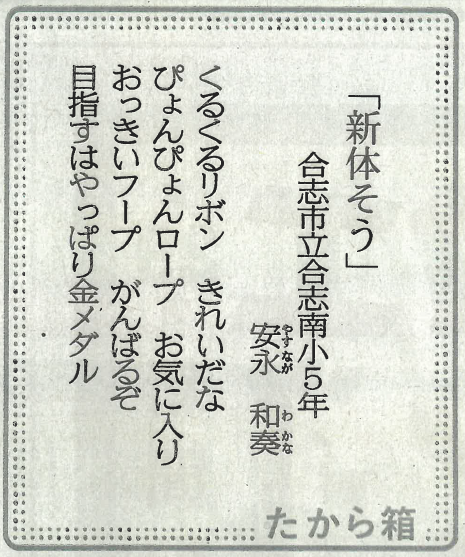 「新体そう」
合志市立合志南小5年
安永 和奏
やすなが わかな
くるくるリボン きれいだな
ぴょんぴょんロープ お気に入り
おっきいフープ がんばるぞ
目指すはやっぱり金メダル
たから箱